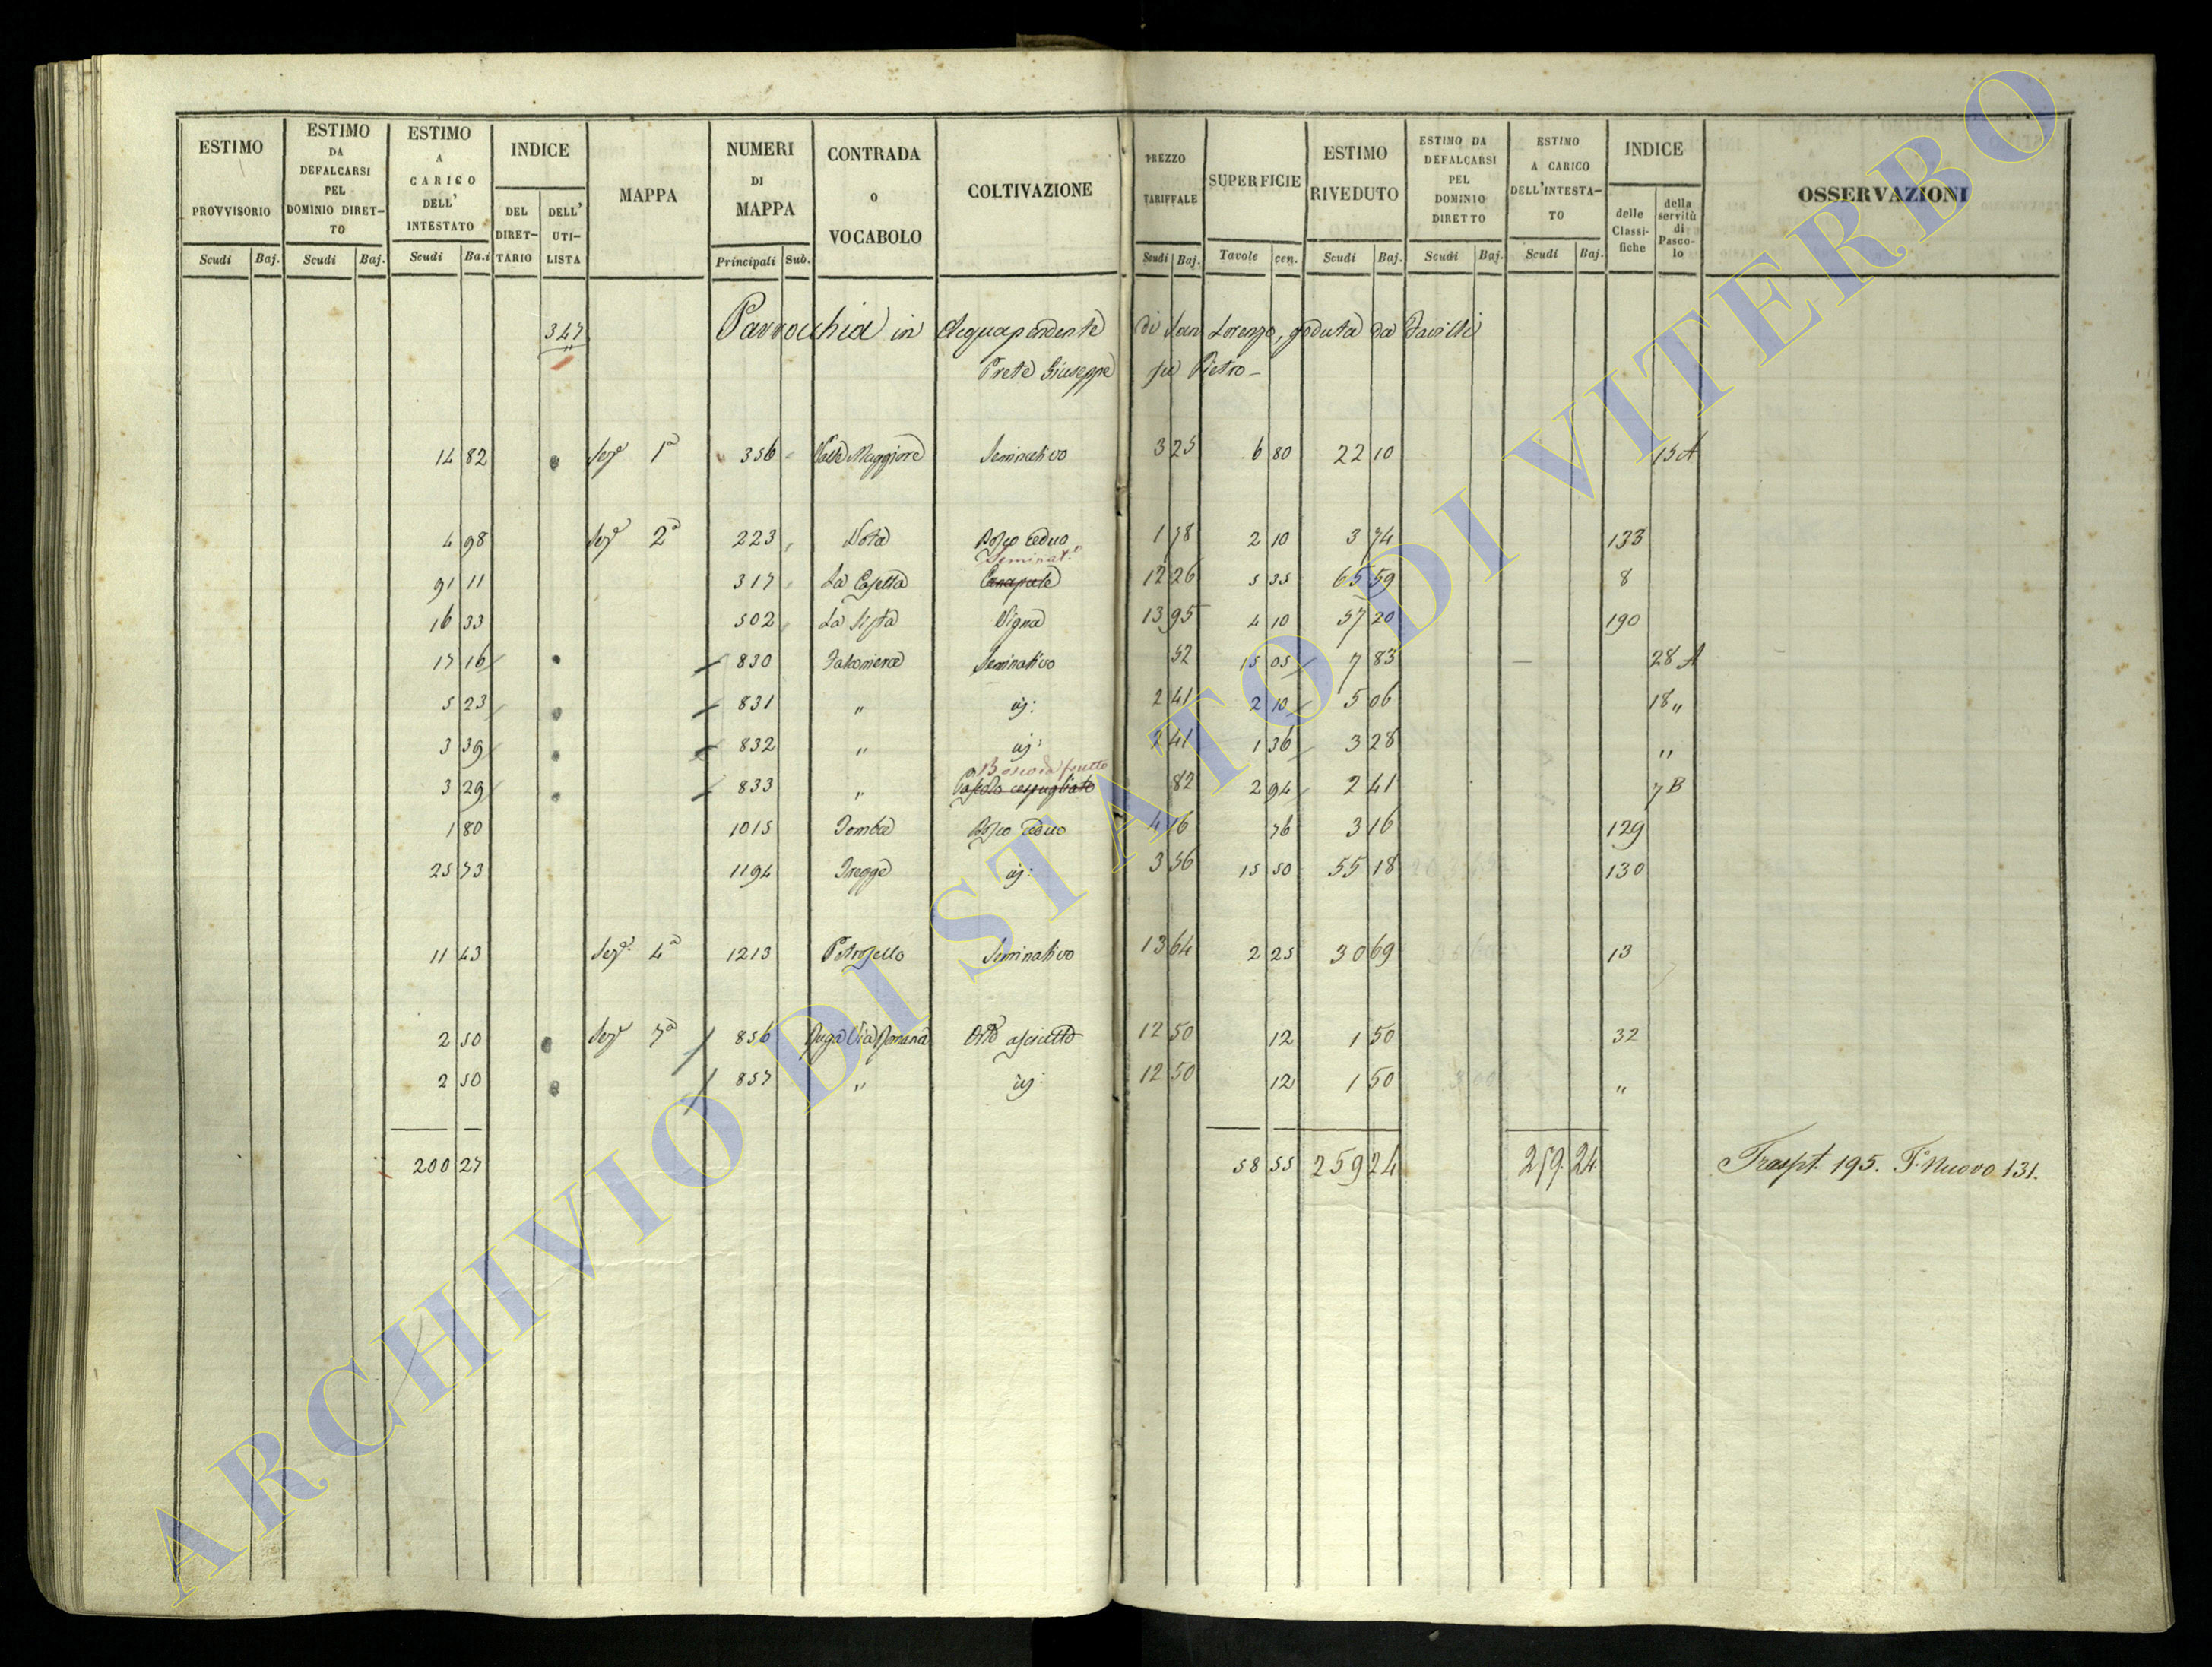 ESTIMO PROVVISORIO | ESTIMO DA DEFALCARSI PEL DOMINIO DIRET-TO | ESTIMO A CARICO DELL' INTESTATO | INDICE | MAPPA | NUMERI DI MAPPA | CONTRADA O VOCABOLO | COLTIVAZIONE | PREZZO TARIFFALE | SUPERFICIE | ESTIMO RIVEDUTO | ESTIMO DA DEFALCARSI PEL DOMINIO DIRETTO | ESTIMO A CARICO DELL'INTESTA-TO | INDICE | OSSERVAZIONI
DEL DIRET-TARIO | DELL' UTI-LISTA | delle Classi-fiche | della servitù di Pasco-lo
Scudi | Baj. | Scudi | Baj. | Scudi | Ba.i | Principali | Sub. | Scudi | Baj. | Tavole | cen. | Scudi | Baj. | Scudi | Baj. | Scudi | Baj.
347 Parrocchia in Acquapendente di San Lorenzo, goduta da
Prete Giuseppe fu Pietro
14 82 Sez.e 1a 356 Valle Maggiore Seminativo 3 25 6 80 22 10 15 A
4 98 Sez.e 2a 223 Bosco ceduo 1 78 2 10 3 74 133
Seminat.o
91 11 317 La Casetta Canapule 12 26 5 35 65 59 8
16 33 502 La Vigna 13 95 4 10 57 20 190
17 16 830 Falconiera Seminativo 52 15 05 7 83 28 A
5 23 831 " id: 2 41 2 10 5 06 18 "
3 39 832 " id: 2 41 1 36 3 28 "
Bosco da frutto
3 29 833 " Pascolo cespugliato 82 2 94 2 41 7 B
1 80 1015 Tomba Bosco ceduo 4 16 76 3 16 129
25 73 1194 id: 3 56 15 50 55 18 130
11 43 Sez.e 4a 1213 Petrosello Seminativo 13 64 2 25 30 69 13
2 50 Sez.e 7a 856 Ruga Via Romana Orto asciutto 12 50 12 1 50 32
2 50 857 " id: 12 50 12 1 50 "
200 27 58 55 259 24 259. 24 Traspt. 195. F.o Nuovo 131.
ARCHIVIO DI STATO DI VITERBO